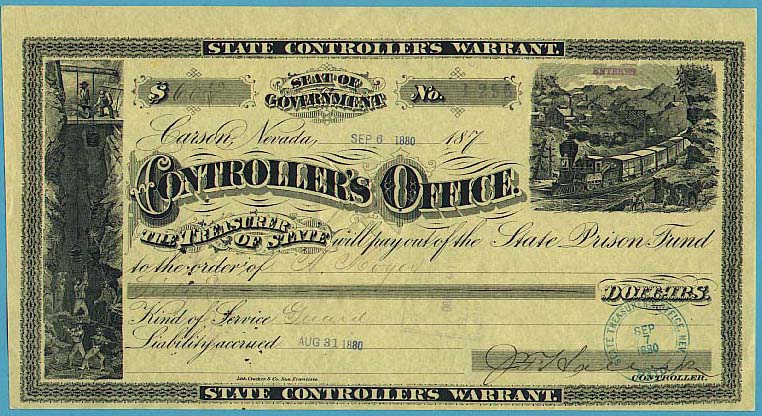 STATE CONTROLLER'S WARRANT.
$ SEAT OF GOVERNMENT No.
ENTERED
Carson, Nevada, SEP 6 1880 187
CONTROLLER'S OFFICE.
THE TREASURER OF STATE will pay out of the State Prison Fund
to the order of
DOLLARS.
Kind of Service Guard
Liability accrued AUG 31 1880
STATE TREASURER'S OFFICE, NEV
SEP
1880
CONTROLLER.
Lith. Crocker & Co. San Francisco
STATE CONTROLLER'S WARRANT.